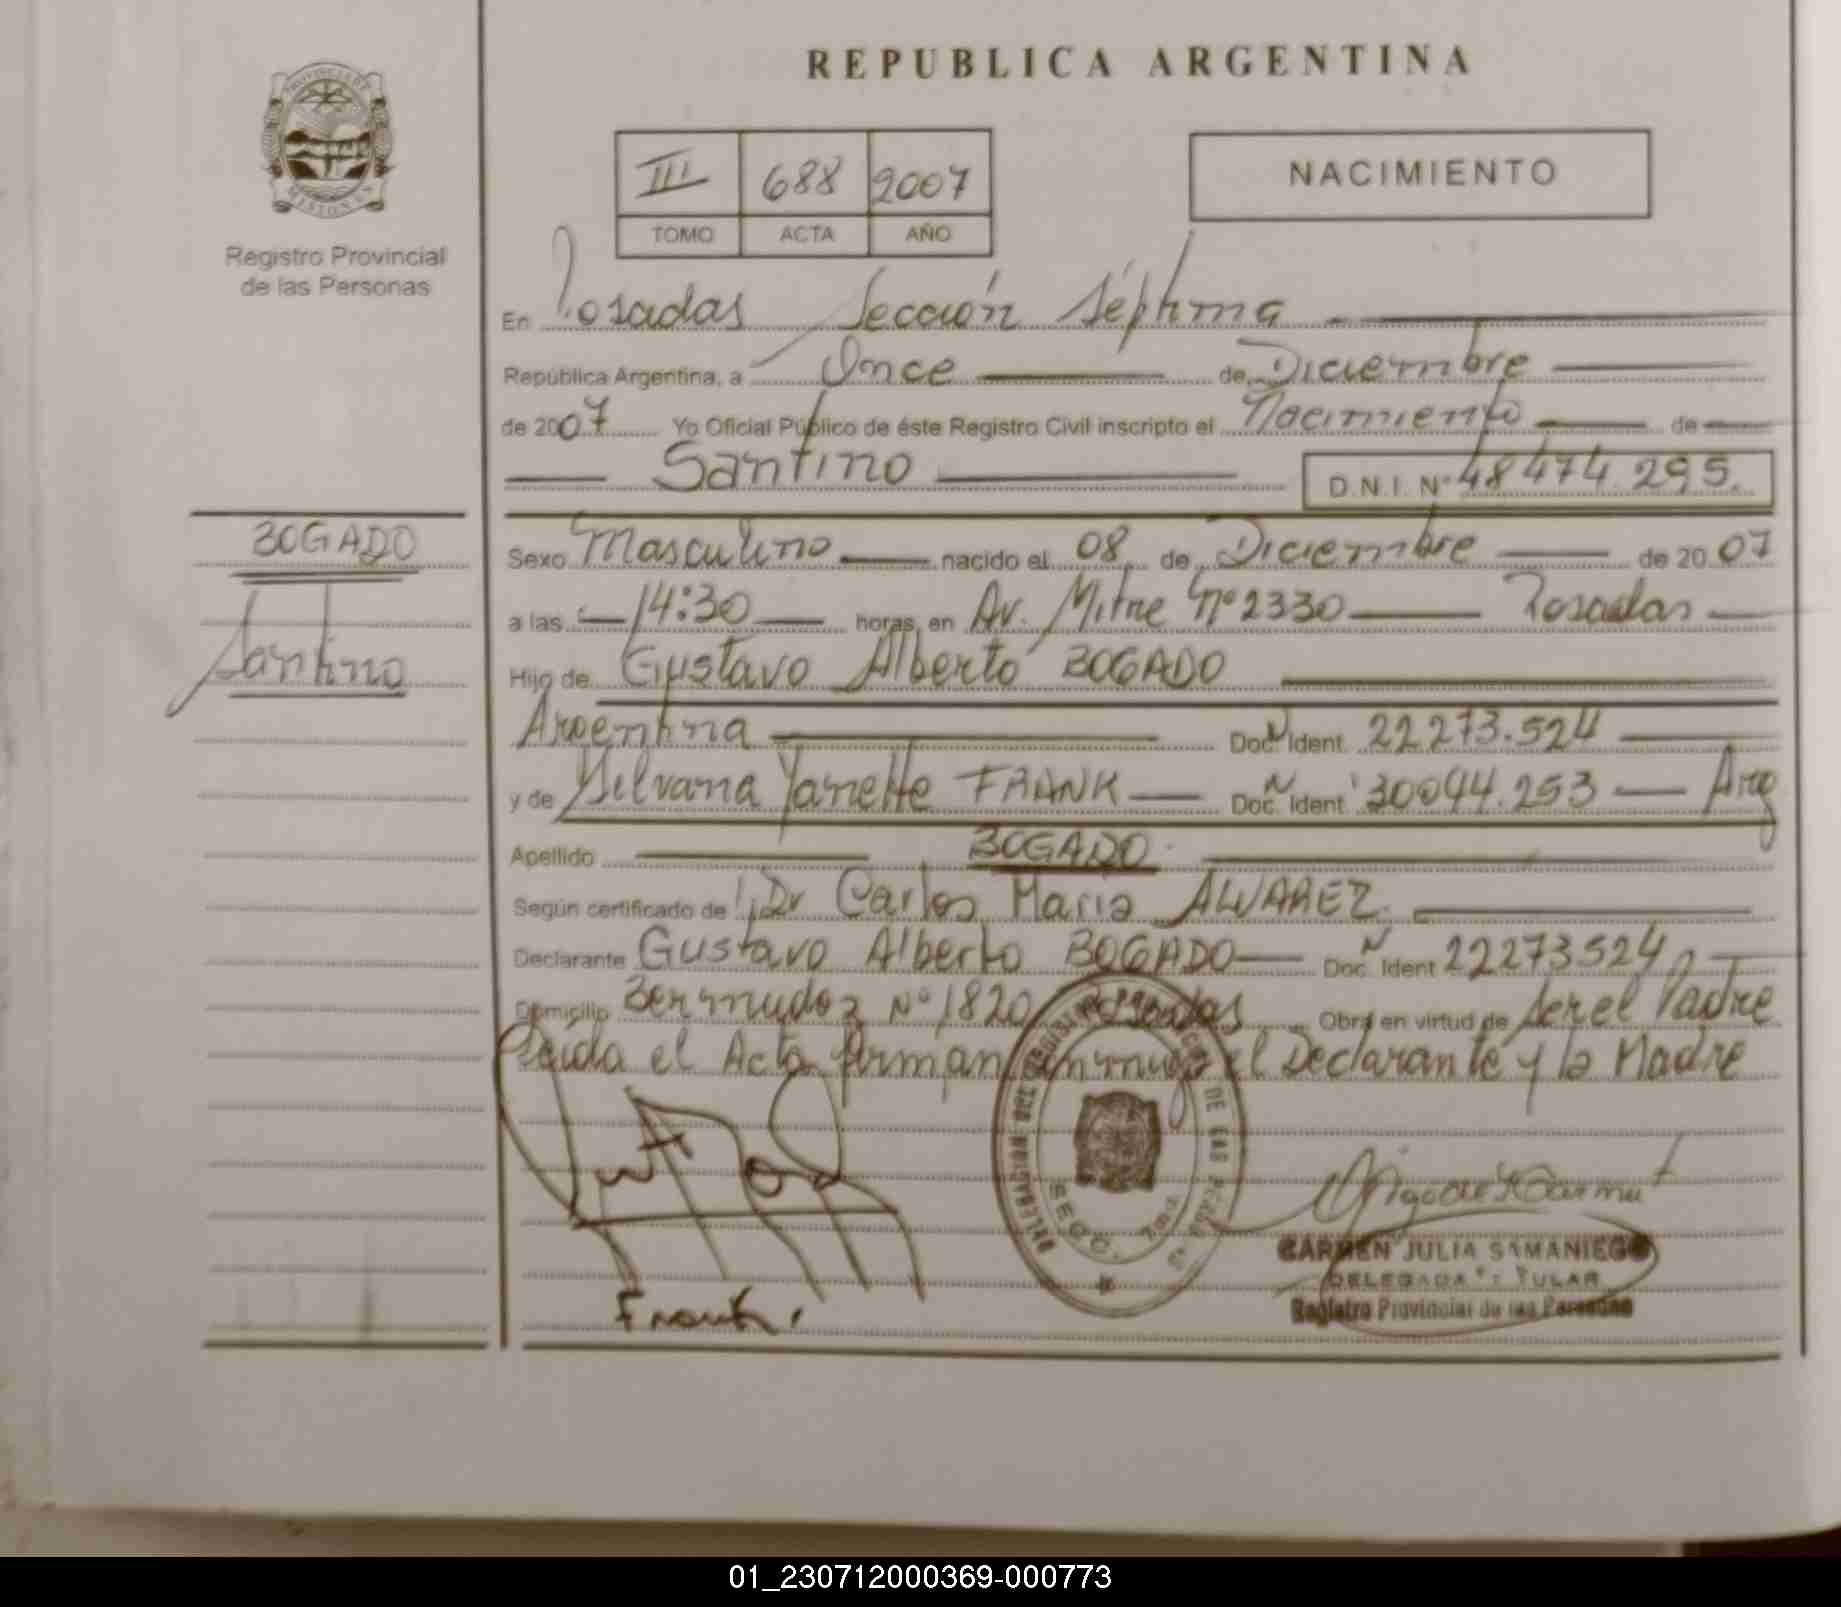 REPUBLICA ARGENTINA
PROVINCIA DE MISIONES
Registro Provincial
de las Personas
III 688 2007
TOMO ACTA AÑO
NACIMIENTO
En Posadas Sección Séptima
República Argentina, a Once de Diciembre
de 2007 Yo Oficial Público de éste Registro Civil inscripto el Nacimiento de
Santino D.N.I. Nº 48474.295.
BOGADO
Santino
Sexo Masculino nacido el 08 de Diciembre de 2007
a las 14:30 horas, en Av. Mitre Nº 2330 Posadas
Hijo de Gustavo Alberto BOGADO
Argentina Doc. N Ident. 22273.524
y de Silvana Yanette FRANK Doc. N Ident 30044.253 Arg
Apellido BOGADO
Según certificado de Dr Carlos Maria ALVAREZ.
Declarante Gustavo Alberto BOGADO Doc. N Ident 22273524
Domicilio Bermudez Nº 1820 Posadas Obra en virtud de ser el Padre
Leída el Acta firman conmigo el Declarante y la Madre
SECC. 7ma
Frank.
CARMEN JULIA SAMANIEGO
DELEGADA TITULAR
Registro Provincial de las Personas
01_230712000369-000773